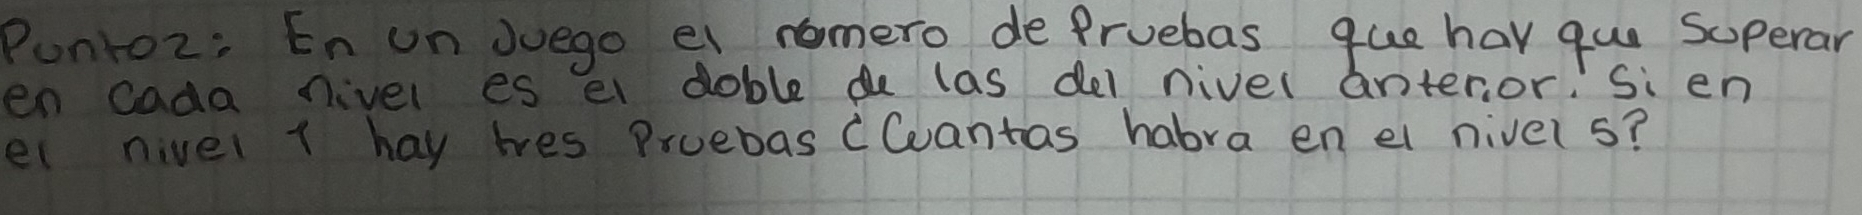 Punto2: En un Juego el número de Pruebas que hay que Superar
en cada nivel es el doble de las del nivel anterior. Si en
el nivel 1 hay tres Pruebas ¿Cuantas habra en el nivel 5?